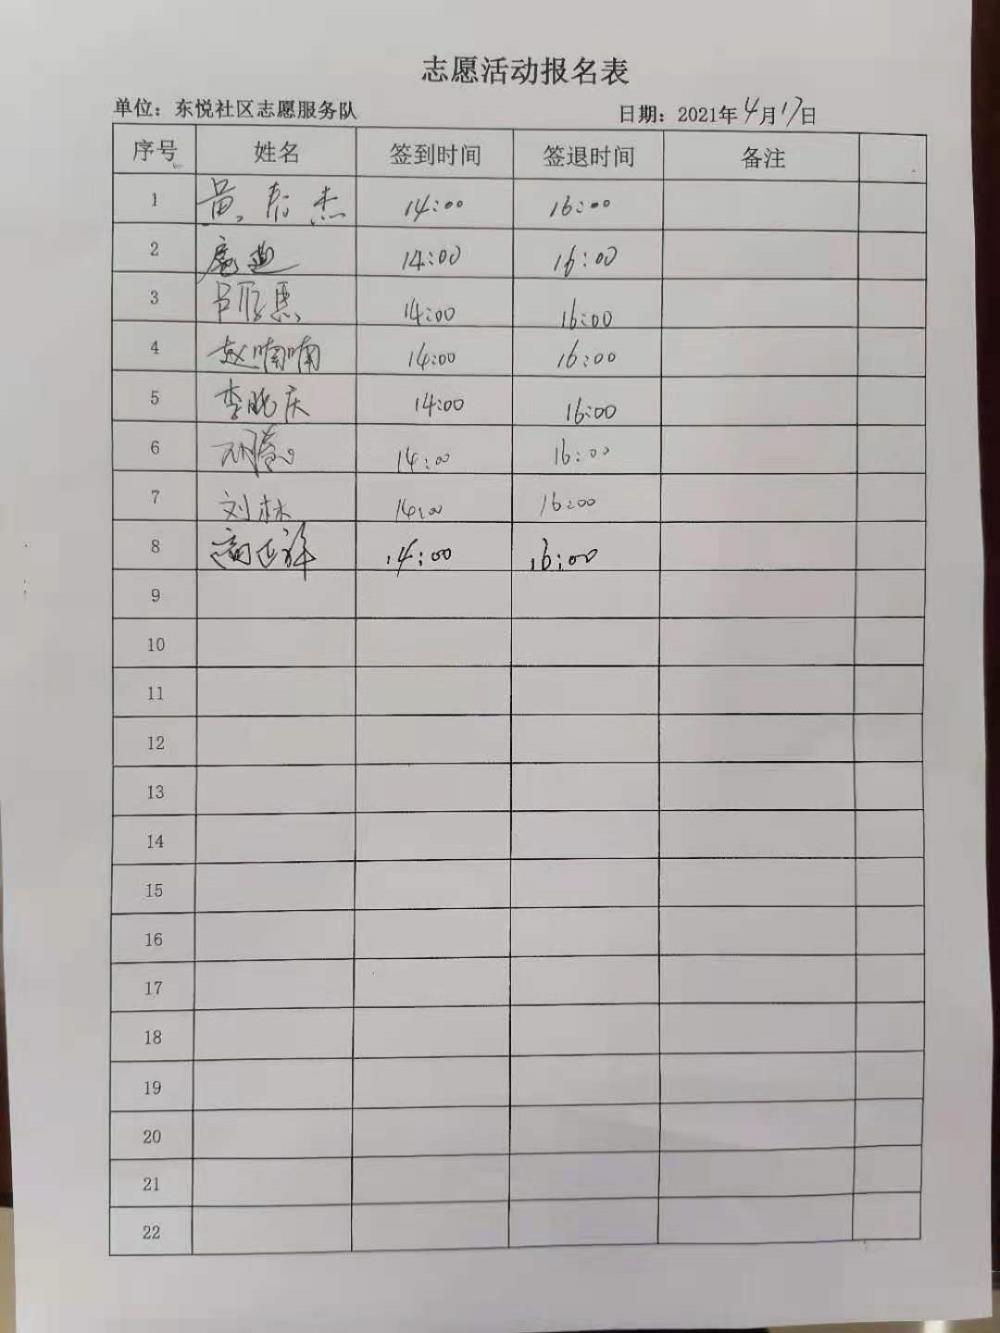 志愿活动报名表
单位：东悦社区志愿服务队 日期：2021年4月17日
序号 姓名 签到时间 签退时间 备注
1 黄 杰 14:00 16:00
2 14:00 16:00
3 吕 14:00 16:00
4 赵喃喃 14:00 16:00
5 李晓庆 14:00 16:00
6 14:00 16:00
7 刘林 14:00 16:00
8 14:00 16:00
9
10
11
12
13
14
15
16
17
18
19
20
21
22